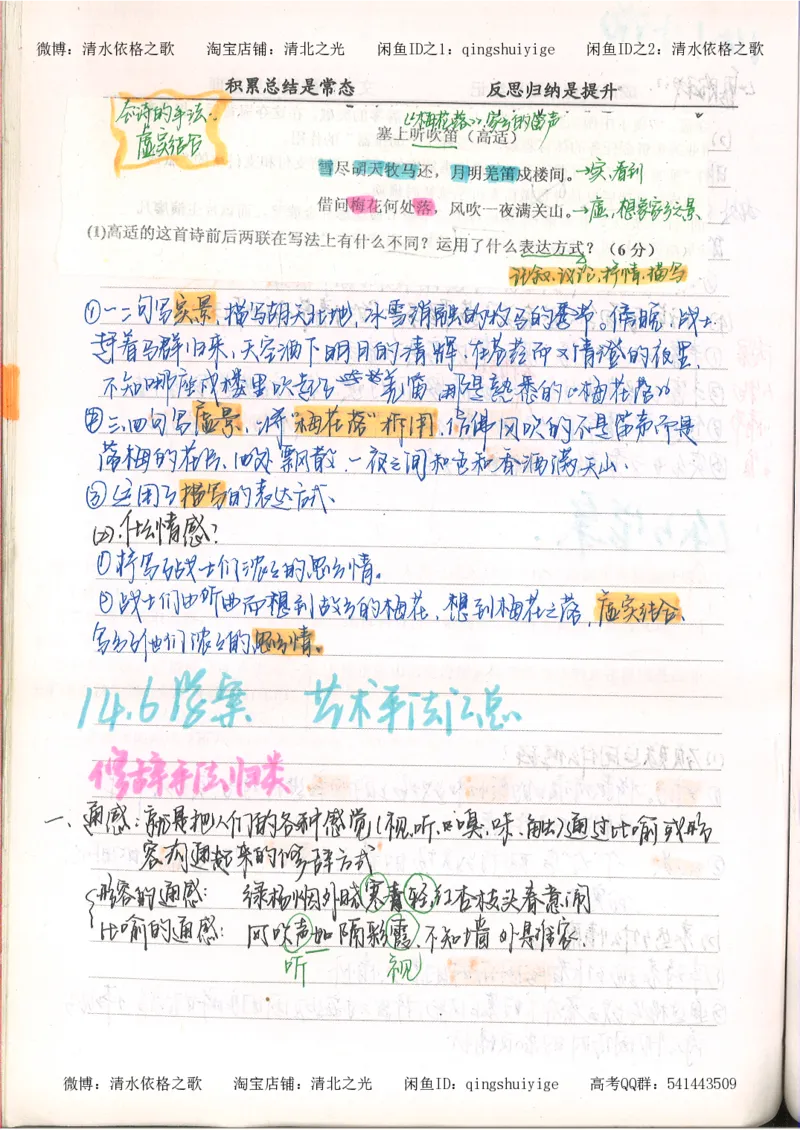 微博：清水依格之歌 淘宝店铺：清北之光 闲鱼ID之1：qingshuiyige 闲鱼ID之2：清水依格之歌
积累总结是常态 反思归纳是提升
全诗的手法：
虚实结合
《梅花落》，家乡的笛声
塞上听吹笛（高适）
雪尽胡天牧马还，月明羌笛戍楼间。→实，看到
借问梅花何处落，风吹一夜满关山。→虚，想家乡之景
(1)高适的这首诗前后两联在写法上有什么不同？运用了什么表达方式？（6分）
记叙、议论、抒情、描写
①一二句写实景，描写胡天北地，冰雪消融的牧马的季节。傍晚，战士
赶着马群归来，天空洒下明月的清辉，在苍茫而又清澄的夜里，
不知哪座戍楼里吹起了羌笛，那是熟悉的《梅花落》
②三、四句写虚景，将"梅花落"拆用，仿佛风吹的不是笛声而是
落梅的花片，四处飘散，一夜之间和色和香洒满关山。
③运用了描写的表达方式、
(2).什么情感？
①抒写了战士们浓浓的思乡情。
②战士们由听曲而想到故乡的梅花，想到梅花之落，虚实结合、
写出他们浓浓的思乡情。
14.6学案 艺术手法汇总
修辞手法归类
一、通感：就是把人们的各种感觉（视、听、嗅、味、触）通过比喻或形
容沟通起来的修辞方式
形容的通感： 绿杨烟外晓寒轻，红杏枝头春意闹
比喻的通感： 风吹声如隔彩霞，不知墙外是谁家．
听 视
微博：清水依格之歌 淘宝店铺：清北之光 闲鱼ID：qingshuiyige 高考QQ群：541443509